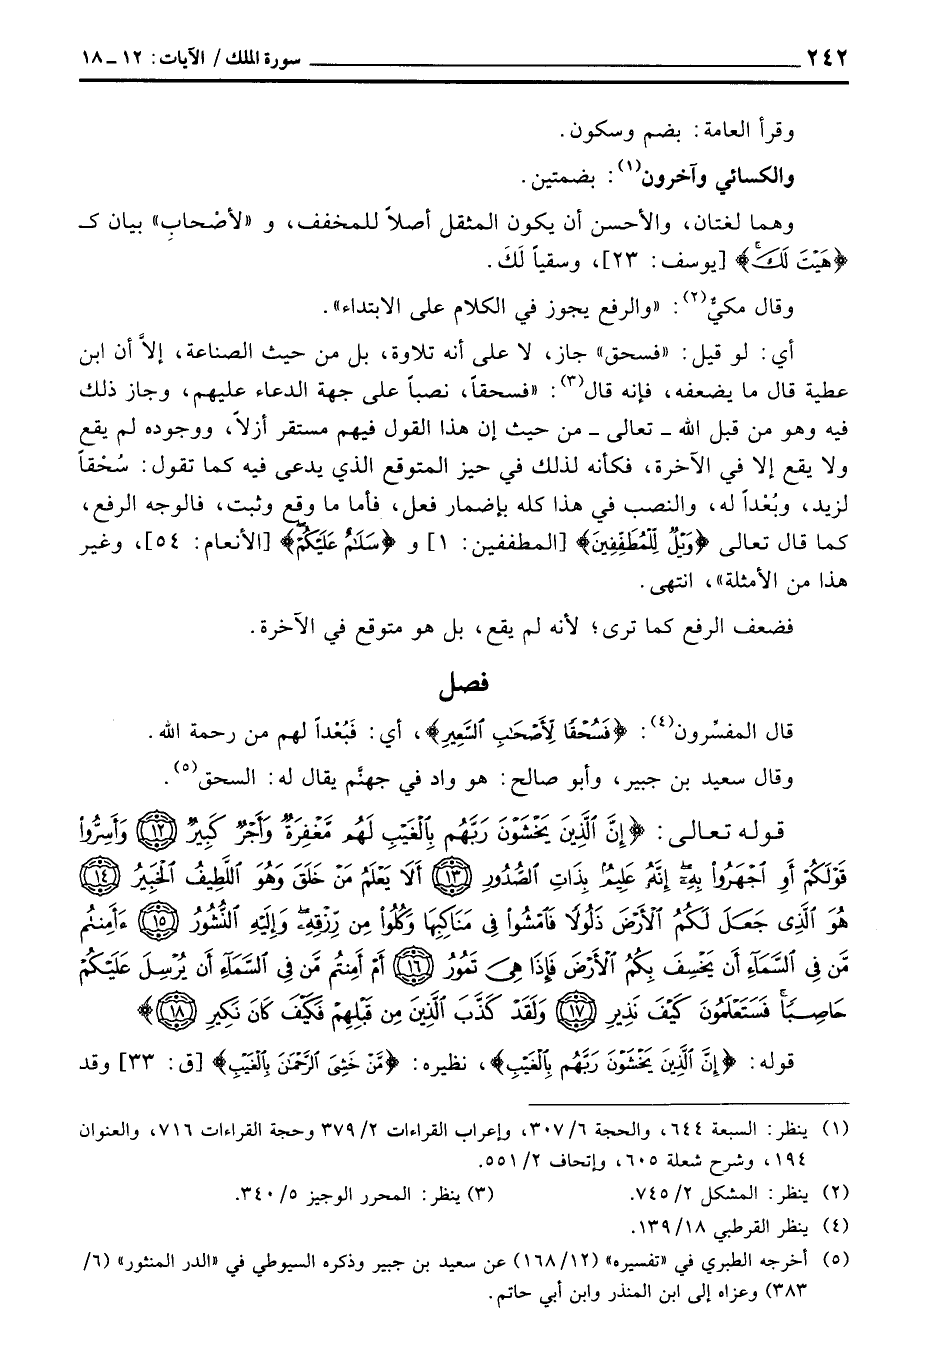 ٢٤٢ سورة الملك / الآيات: ١٢ ـ ١٨
وقرأ العامة: بضم وسكون.
والكسائي وآخرون(١): بضمتين.
وهما لغتان، والأحسن أن يكون المثقل أصلاً للمخفف، و «لأصْحابِ» بيان كـ
﴿هَيْتَ لَكَ﴾ [يوسف: ٢٣]، وسقياً لَكَ.
وقال مكيٌّ(٢): «والرفع يجوز في الكلام على الابتداء».
أي: لو قيل: «فسحق» جاز، لا على أنه تلاوة، بل من حيث الصناعة، إلاَّ أن ابن
عطية قال ما يضعفه، فإنه قال(٣): «فسحقاً، نصباً على جهة الدعاء عليهم، وجاز ذلك
فيه وهو من قبل الله ـ تعالى ـ من حيث إن هذا القول فيهم مستقر أزلاً، ووجوده لم يقع
ولا يقع إلا في الآخرة، فكأنه لذلك في حيز المتوقع الذي يدعى فيه كما تقول: سُحْقاً
لزيد، وبُعْداً له، والنصب في هذا كله بإضمار فعل، فأما ما وقع وثبت، فالوجه الرفع،
كما قال تعالى ﴿وَيْلٌ لِّلْمُطَفِّفِينَ﴾ [المطففين: ١] و ﴿سَلَٰمٌ عَلَيْكُمْۖ﴾ [الأنعام: ٥٤]، وغير
هذا من الأمثلة»، انتهى.
فضعف الرفع كما ترى؛ لأنه لم يقع، بل هو متوقع في الآخرة.
فصل
قال المفسِّرون(٤): ﴿فَسُحْقًا لِّأَصْحَٰبِ السَّعِيرِ﴾، أي: فَبُعْداً لهم من رحمة الله.
وقال سعيد بن جبير، وأبو صالح: هو واد في جهنَّم يقال له: السحق(٥).
قوله تعالى: ﴿إِنَّ ٱلَّذِينَ يَخْشَوْنَ رَبَّهُم بِٱلْغَيْبِ لَهُم مَّغْفِرَةٌ وَأَجْرٌ كَبِيرٌ ١٢ وَأَسِرُّوا۟
قَوْلَكُمْ أَوِ ٱجْهَرُوا۟ بِهِۦٓ إِنَّهُۥ عَلِيمٌۢ بِذَاتِ ٱلصُّدُورِ ١٣ أَلَا يَعْلَمُ مَنْ خَلَقَ وَهُوَ ٱللَّطِيفُ ٱلْخَبِيرُ ١٤
هُوَ ٱلَّذِى جَعَلَ لَكُمُ ٱلْأَرْضَ ذَلُولًا فَٱمْشُوا۟ فِى مَنَاكِبِهَا وَكُلُوا۟ مِن رِّزْقِهِۦۖ وَإِلَيْهِ ٱلنُّشُورُ ١٥ ءَأَمِنتُم
مَّن فِى ٱلسَّمَآءِ أَن يَخْسِفَ بِكُمُ ٱلْأَرْضَ فَإِذَا هِىَ تَمُورُ ١٦ أَمْ أَمِنتُم مَّن فِى ٱلسَّمَآءِ أَن يُرْسِلَ عَلَيْكُمْ
حَاصِبًاۖ فَسَتَعْلَمُونَ كَيْفَ نَذِيرِ ١٧ وَلَقَدْ كَذَّبَ ٱلَّذِينَ مِن قَبْلِهِمْ فَكَيْفَ كَانَ نَكِيرِ ١٨﴾
قوله: ﴿إِنَّ ٱلَّذِينَ يَخْشَوْنَ رَبَّهُم بِٱلْغَيْبِ﴾، نظيره: ﴿مَّنْ خَشِىَ ٱلرَّحْمَٰنَ بِٱلْغَيْبِ﴾ [ق: ٣٣] وقد
(١) ينظر: السبعة ٦٤٤، والحجة ٦/ ٣٠٧، وإعراب القراءات ٢/ ٣٧٩ وحجة القراءات ٧١٦، والعنوان
١٩٤، وشرح شعلة ٦٠٥، وإتحاف ٢/ ٥٥١.
(٢) ينظر: المشكل ٢/ ٧٤٥. (٣) ينظر: المحرر الوجيز ٥/ ٣٤٠.
(٤) ينظر القرطبي ١٨/ ١٣٩.
(٥) أخرجه الطبري في «تفسيره» (١٢/ ١٦٨) عن سعيد بن جبير وذكره السيوطي في «الدر المنثور» (٦/
٣٨٣) وعزاه إلى ابن المنذر وابن أبي حاتم.